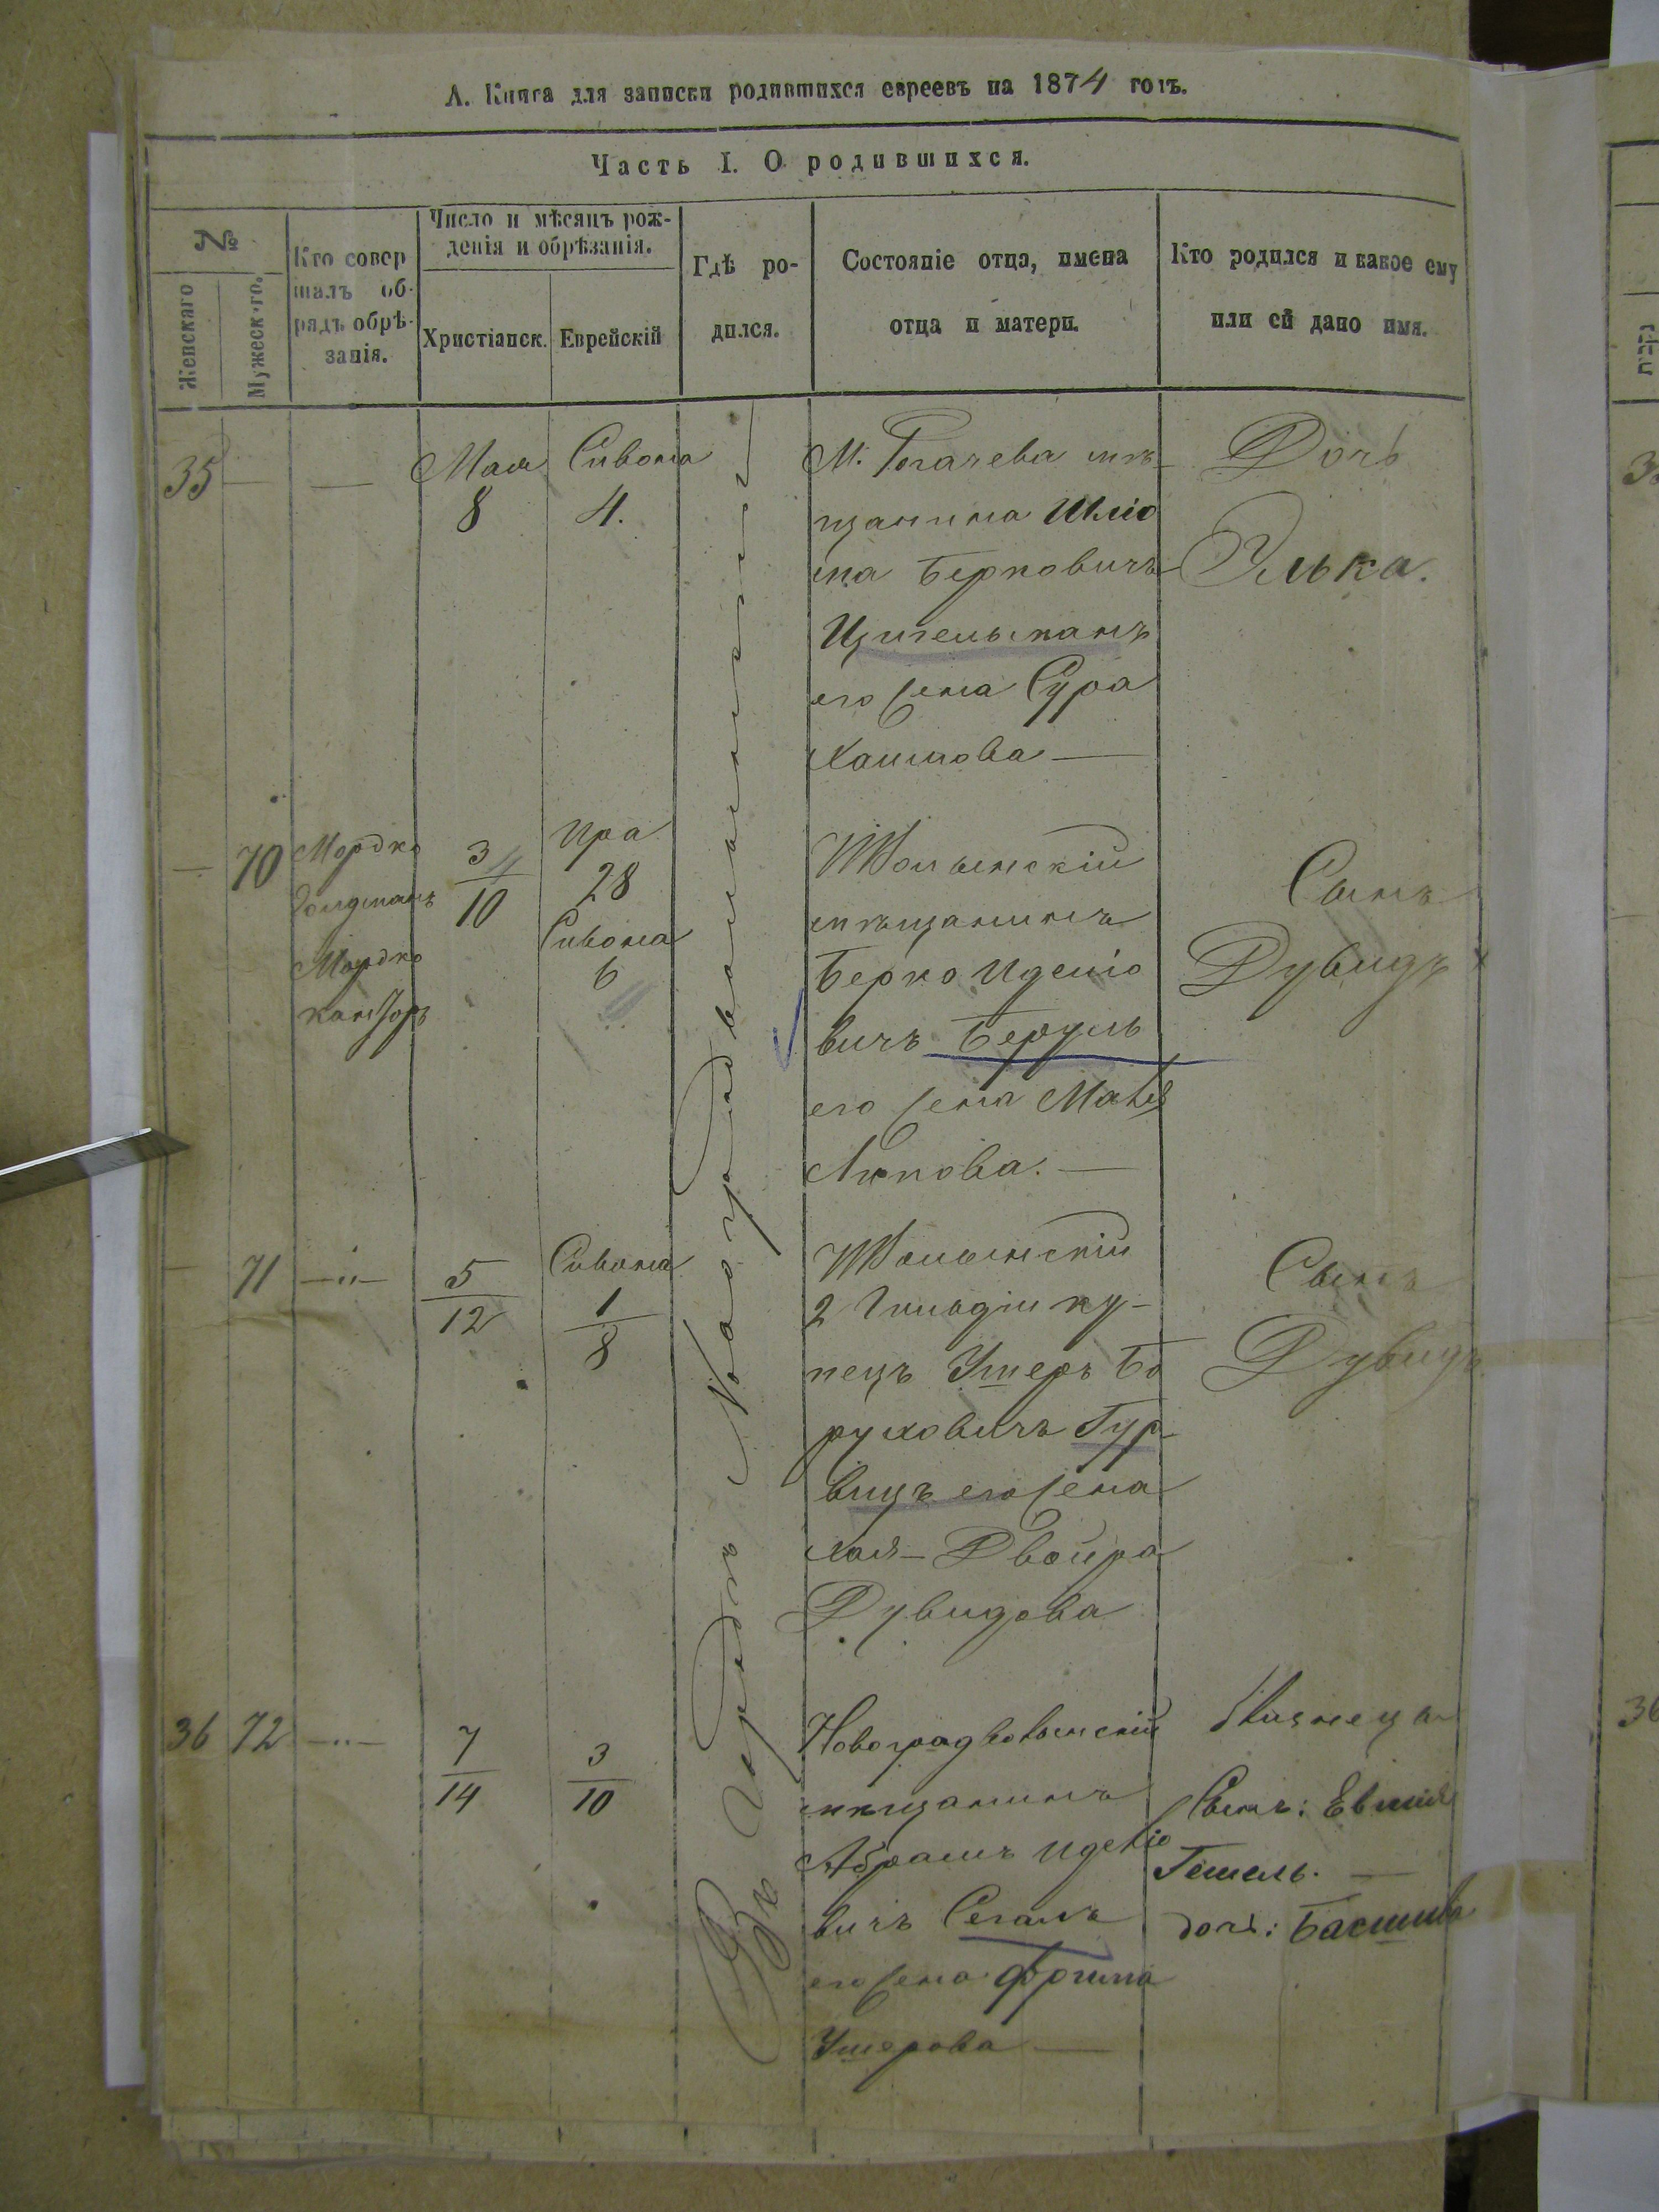 А. Книга для записки родившихся евреевъ на 1874 годъ.
Часть I. О родившихся.
№
Женскаго
Мужеск-го.
Кто совер
шалъ об-
рядъ обрѣ-
занія.
Число и мѣсяцъ рож-
денія и обрѣзанія.
Христіанск.
Еврейскій
Гдѣ ро-
дился.
Состояніе отца, имена
отца и матери.
Кто родился и какое ему
или ей дано имя.
Въ городѣ Новоградволынскѣ
35 — —
Мая
8
Сивона
4.
М. Рогачева мѣ-
щанина Шлió
ма Берковичъ
Цительманъ
его жена Сура
Хаимова —
Дочь
Элька.
— 70
Мордко
Мордко
Канторъ
3
10
Ира
28
Сивона
6
Волынскій
мѣщанинъ
Берко Иделіо
вичъ
его жена
Липова. —
Сынъ
Дувидъ
— 71 —"—
5
12
Сивона
1
8
Волынскій
2 Гильдіи ку-
пецъ Ушеръ Бо
руховичъ Гур-
вицъ его жена
Хая-Двойра
Дувидова
Сынъ
Дувидъ
36 72 —"—
7
14
3
10
Новоградволынскій
мѣщанинъ
Абрамъ
вичъ Сегалъ
его жена Фрима
Ушерова —
Близнецы
Сынъ:
Гешель. —
дочь: Басшива